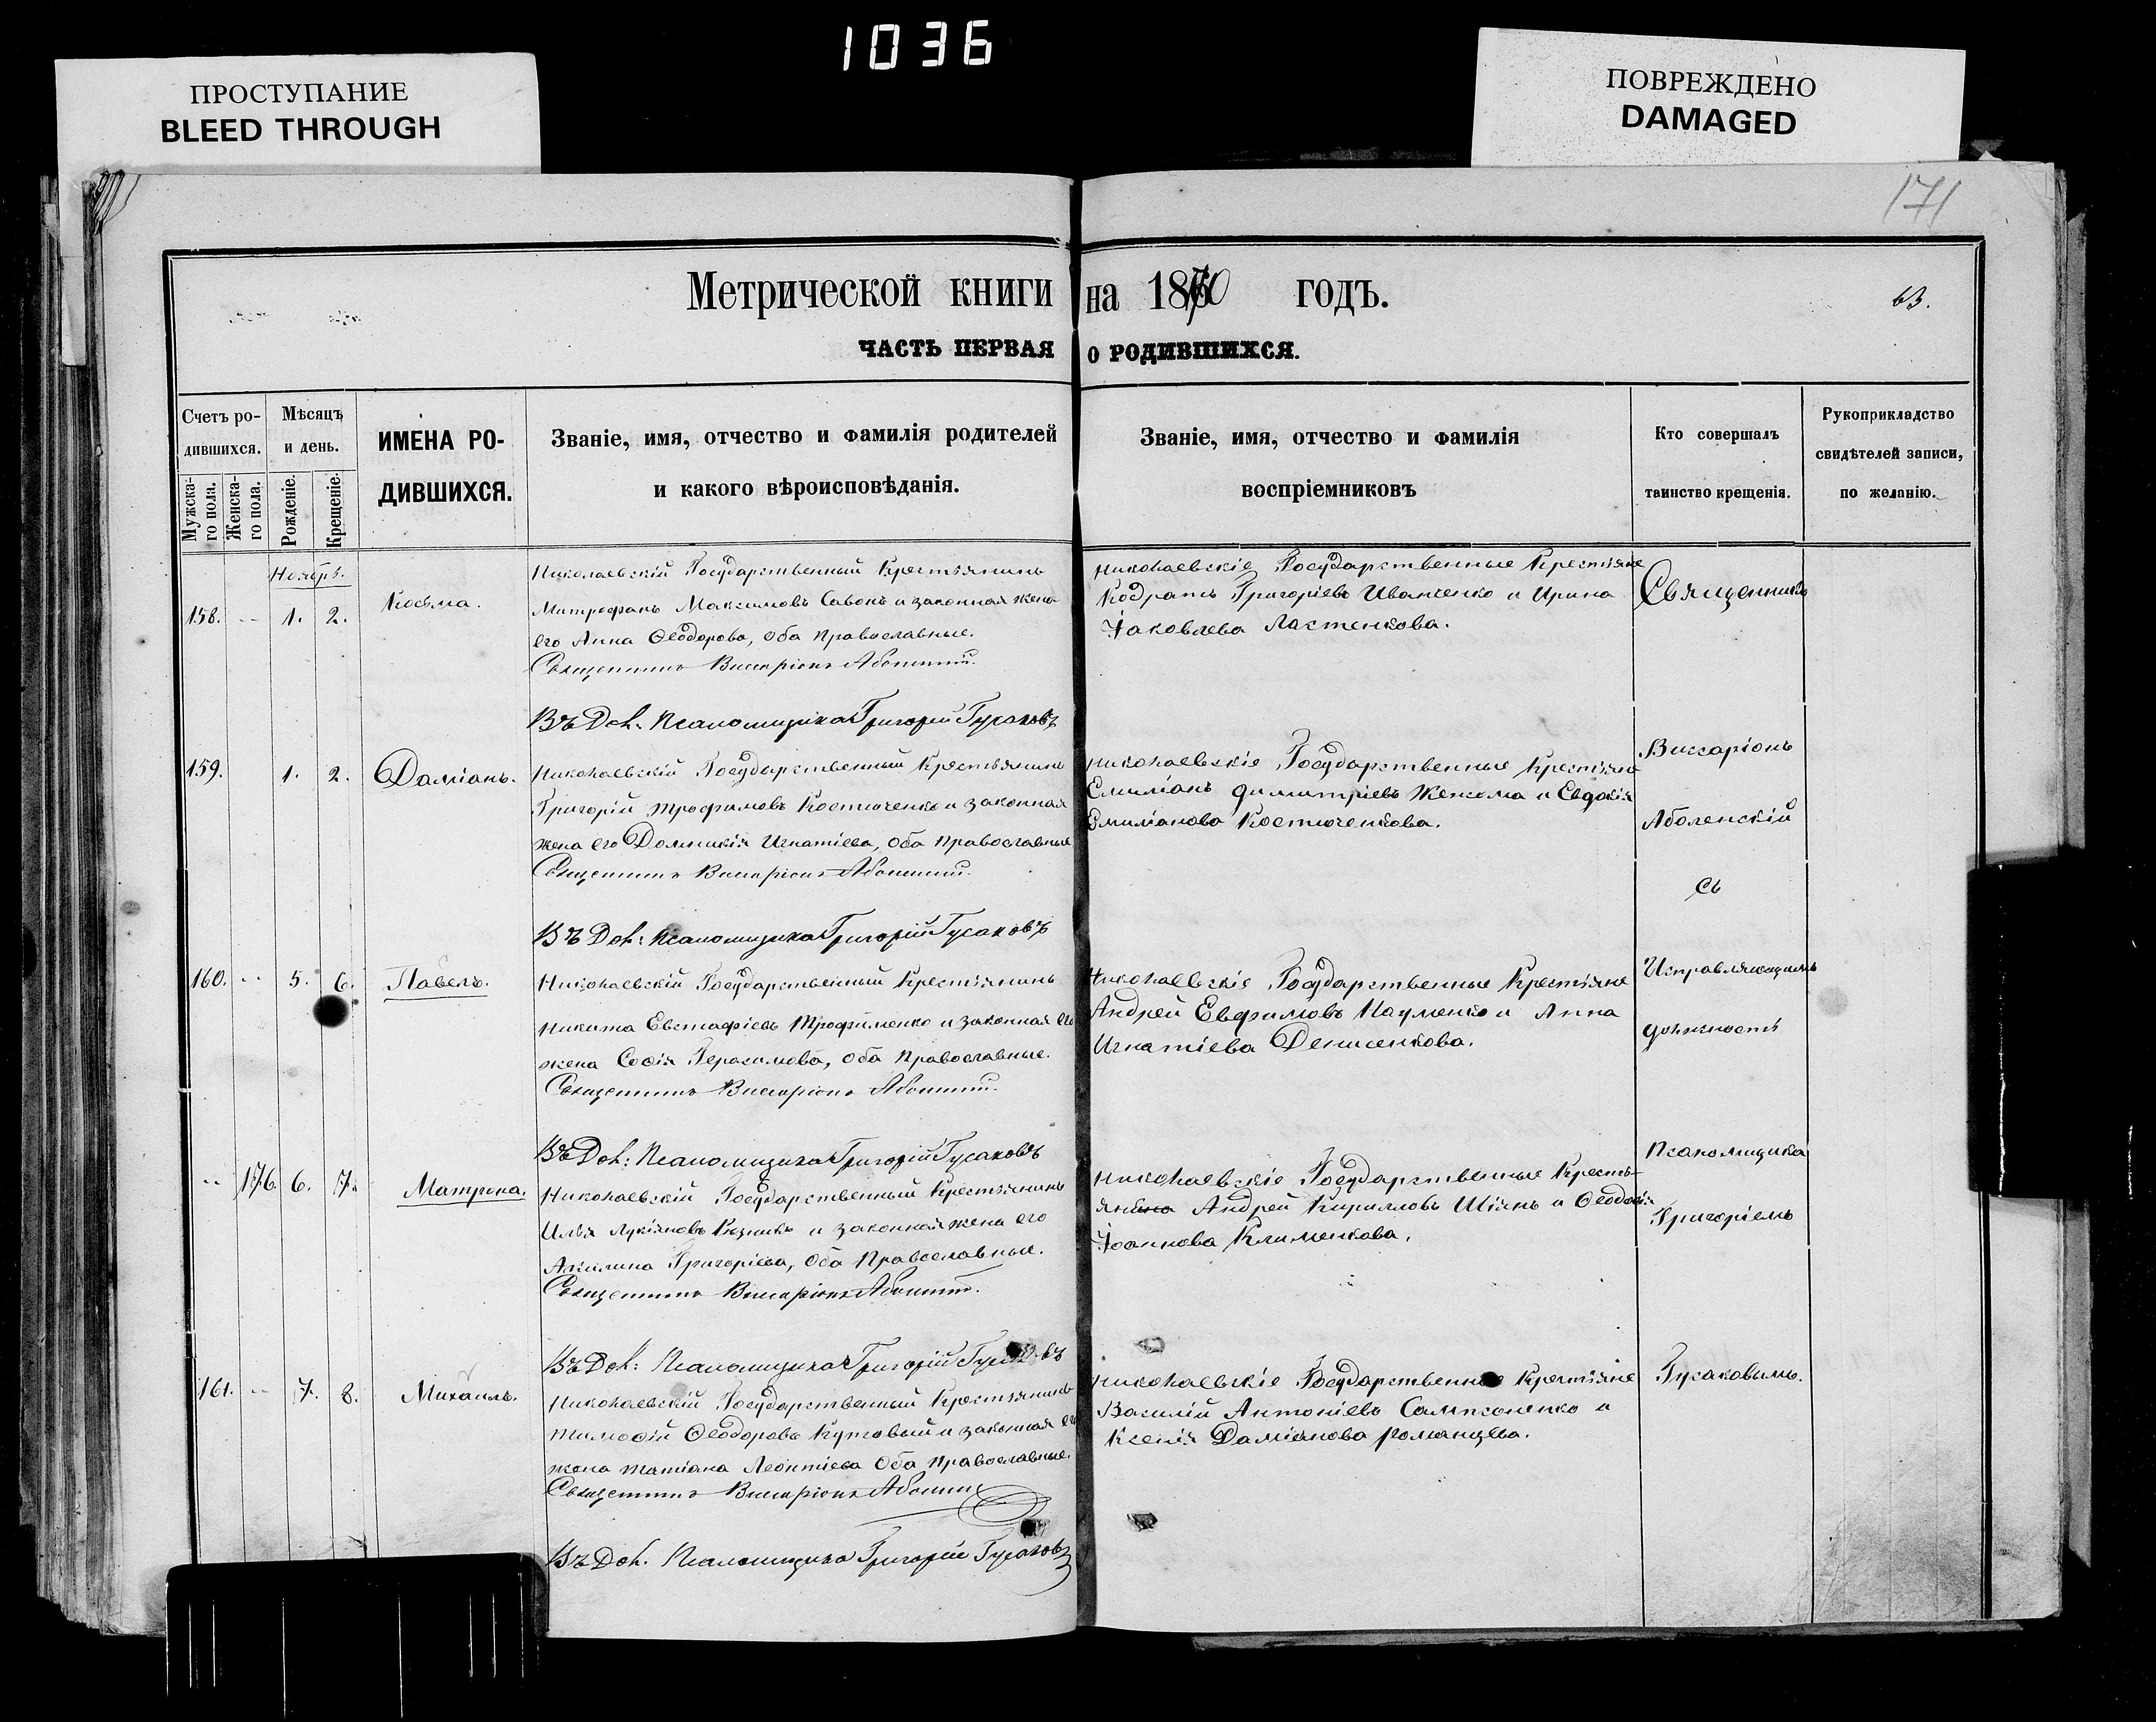 1036
ПРОСТУПАНИЕ
BLEED THROUGH
ПОВРЕЖДЕНО
DAMAGED
171
Метрической книги на 1870 годъ.
63.
ЧАСТЬ ПЕРВАЯ О РОДИВШИХСЯ.
Счетъ ро-
дившихся.
Мужска-
го пола.
Женска-
го пола.
Мѣсяцъ
и день.
Рожденіе.
Крещеніе.
ИМЕНА РО-
ДИВШИХСЯ.
Званіе, имя, отчество и фамилія родителей
и какого вѣроисповѣданія.
Званіе, имя, отчество и фамилія
воспріемниковъ
Кто совершалъ
таинство крещенія.
Рукоприкладство
свидѣтелей записи,
по желанію.
Ноябрь.
158. -- 1. 2.
Косьма.
Николаевскій Государственный Крестьянинъ
Митрофанъ Максимовъ Савонъ и законная жена
его Анна Ѳеодорова, оба православные.
Священникъ Виссаріонъ Аболенскій.
Въ Дол. Псаломщика Григорій Гусаковъ
Николаевскіе Государственные Крестьяне
Кодратъ Григоріевъ Иванченко и Ирина
Іаковлева Ластенкова.
159. 1. 2.
Даміанъ.
Николаевскій Государственный Крестьянинъ
Григорій Трофимовъ Костюченко и законная
жена его Домникія Игнатіева, оба православные
Священникъ Виссаріонъ Аболенскій.
Въ Дол: Псаломщика Григорій Гусаковъ
Николаевскіе Государственные Крестьяне
Емиліанъ Димитріевъ и Евдокія
Емиліанова Костюченкова.
160. -- 5. 6.
Павелъ.
Николаевскій Государственный Крестьянинъ
Никита Евстафіевъ Трофименко и законная его
жена Софія Герасимова, оба православные.
Священникъ Виссаріонъ Аболенскій.
Въ Дол: Псаломщика Григорій Гусаковъ
Николаевскіе Государственные Крестьяне
Андрей Евфимовъ Науменко и Анна
Игнатіева Денисенкова.
-- 176. 6. 7.
Матрона.
Николаевскій Государственный Крестьянинъ
Илья Лукіяновъ и законная жена его
Акилина Григоріева, оба Православные.
Священникъ Виссаріонъ Аболенскій.
Въ Дол: Псаломщика Григорій Гусаковъ
Николаевскіе Государственные Кресть-
Андрей Кирилловъ Шіянъ и Ѳеодосія
Іоаннова Клименкова.
161. -- 7. 8.
Михаилъ.
Николаевскій Государственный Крестьянинъ
Тимоѳій Ѳеодоровъ и законная его
жена Татіана Леонтіева Оба православные.
Священникъ Виссаріонъ Аболенскій
Въ Дол. Псаломщика Григорій Гусаковъ
Николаевскіе Государственные Крестьяне
Василій Антоніевъ Сампсоненко и
Ксенія Даміанова Романцева.
Священникъ
Виссаріонъ
Аболенскій
съ
Исправляющимъ
должность
Псаломщика
Григоріемъ
Гусаковымъ.